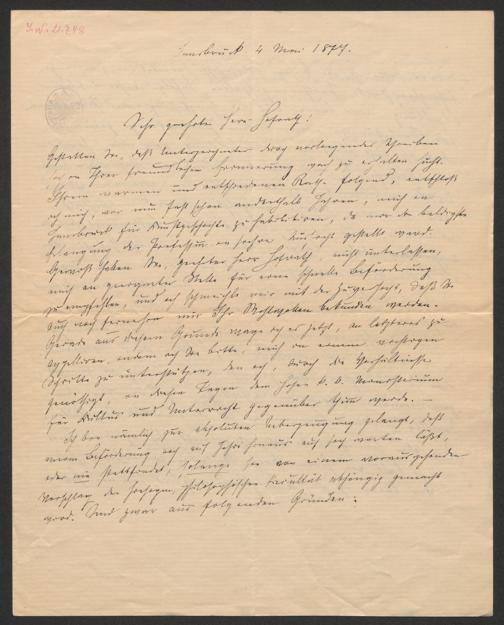 I.N. 21.748
Innsbruck 4 Mai 1877.
Sehr geehrter Herr Hofrath!
Gestatten Sie, daß Unterzeichneter durch vorliegendes Schreiben
sich in Ihrer freundlichen Erinnerung wach zu erhalten sucht.
Ihrem warmen und entschiedenen Rathe folgend, entschloß
ich mich, vor nun fast schon anderthalb Jahren, mich in
Innsbruck für Kunstgeschichte zu habilitiren, da mir die baldigste
Erlangung der Professur in sichere Aussicht gestellt ward.
Gewiß haben Sie, geehrter Herr Hofrath, nicht unterlassen,
mich an geeigneter Stelle für eine schnelle Beförderung
zu empfehlen, und ich schmeichle mir mit der Zuversicht, daß Sie
auch noch fernerhin mir Ihr Wohlwollen bekunden werden.
Gerade aus diesem Grunde wage ich es jetzt, an letzteres zu
appelliren, indem ich Sie bitte, mich in einem wichtigen
Schritte zu unterstützen, den ich, durch die Verhältnisse
genöthigt, in diesen Tagen dem hohen k. k. Ministerium
für Kultus und Unterricht gegenüber thun werde. —
Ich bin nämlich zur absoluten Ueberzeugung gelangt, daß
meine Beförderung noch auf Jahre hinaus auf sich warten läßt,
oder nie stattfindet, solange sie von einem vorausgehenden
Vorschlag der hiesigen philosophischen Facultät abhängig gemacht
wird. Und zwar aus folgenden Gründen: